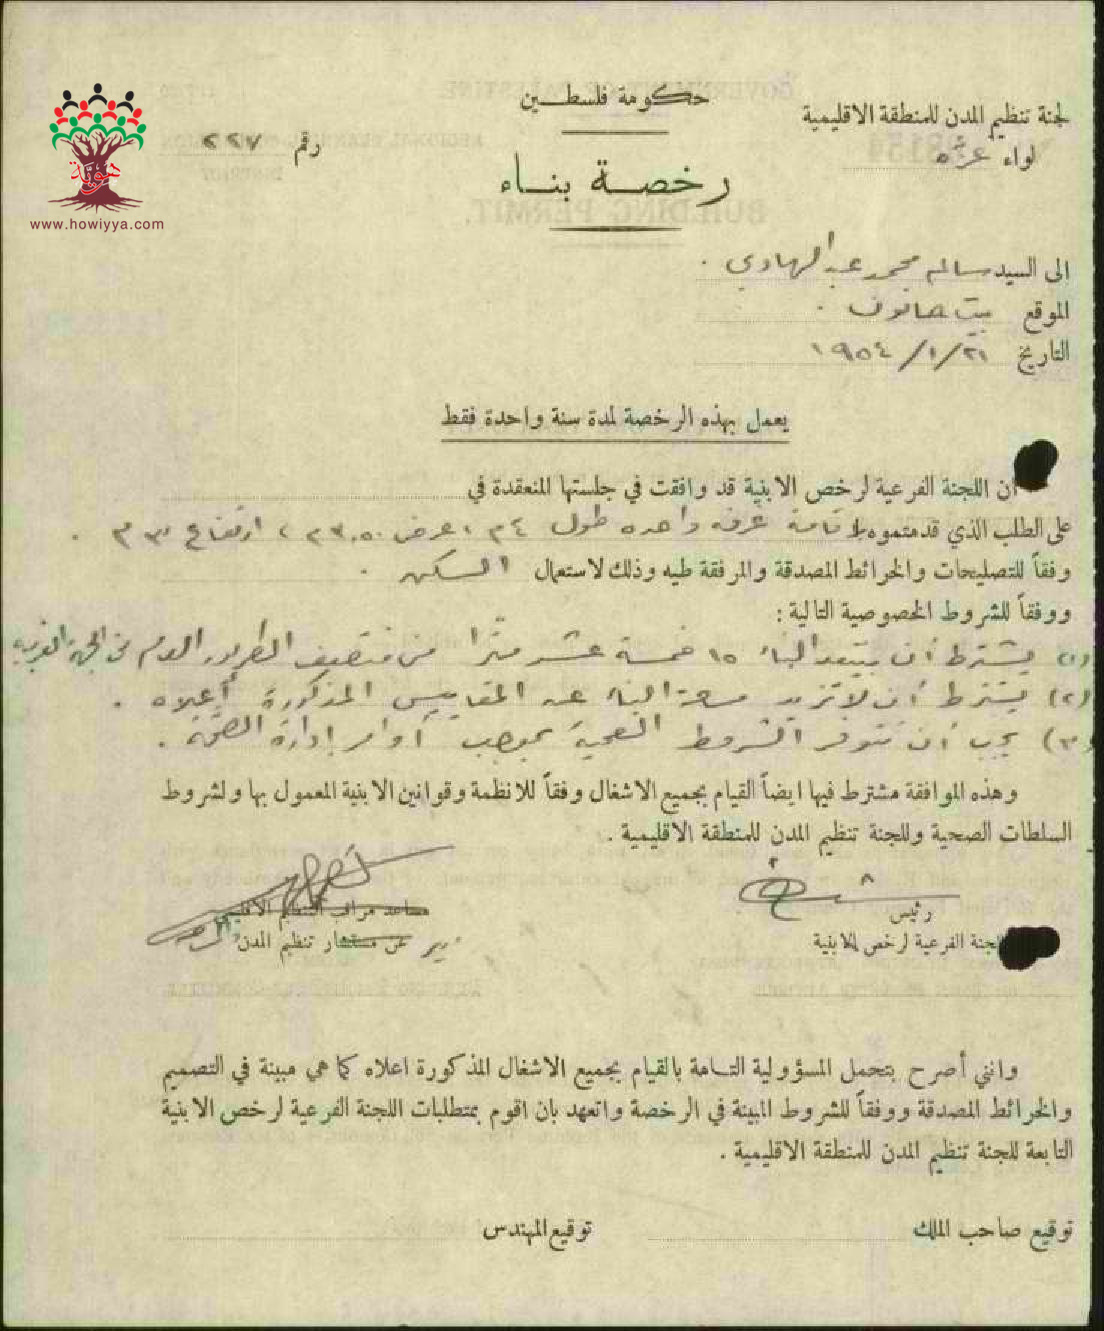 حكومة فلسطين
لجنة تنظيم المدن للمنطقة الاقليمية
لواء غزه
رقم ٢٢٧
رخصة بناء
هوية
www.howiyya.com
الى السيد سالم محمد عبد الهادي .
الموقع بيت حانون .
التاريخ ٢١/١/١٩٥٤
يعمل بهذه الرخصة لمدة سنة واحدة فقط
ان اللجنة الفرعية لرخص الابنية قد وافقت في جلستها المنعقدة في
على الطلب الذي قدمتموه لاقامة غرفه واحده طول ٤م ، عرض ٣,٥٠م ، ارتفاع ٣م .
وفقاً للتصليحات والخرائط المصدقة والمرفقة طيه وذلك لاستعمال السكن .
ووفقاً للشروط الخصوصية التالية :
(١) يشترط أن يبتعد البناء ١٥ خمسة عشر مترا من منتصف الطريق العام من الجهة الغربيه
(٢) يشترط أن لا تزيد مساحة البناء عن المقاييس المذكورة أعلاه .
(٣) يجب أن تتوفر الشروط الصحية بموجب أوامر إدارة الصحة .
وهذه الموافقة مشترط فيها ايضاً القيام بجميع الاشغال وفقاً للانظمة وقوانين الابنية المعمول بها ولشروط
السلطات الصحية وللجنة تنظيم المدن للمنطقة الاقليمية .
رئيس
مساعد مراقب التنظيم الاقليمي
اللجنة الفرعية لرخص الابنية
عن مستشار تنظيم المدن
وانني أصرح بتحمل المسؤولية التامة بالقيام بجميع الاشغال المذكورة اعلاه كما هي مبينة في التصميم
والخرائط المصدقة ووفقاً للشروط المبينة في الرخصة واتعهد بان اقوم بمتطلبات اللجنة الفرعية لرخص الابنية
التابعة للجنة تنظيم المدن للمنطقة الاقليمية .
توقيع صاحب الملك
توقيع المهندس